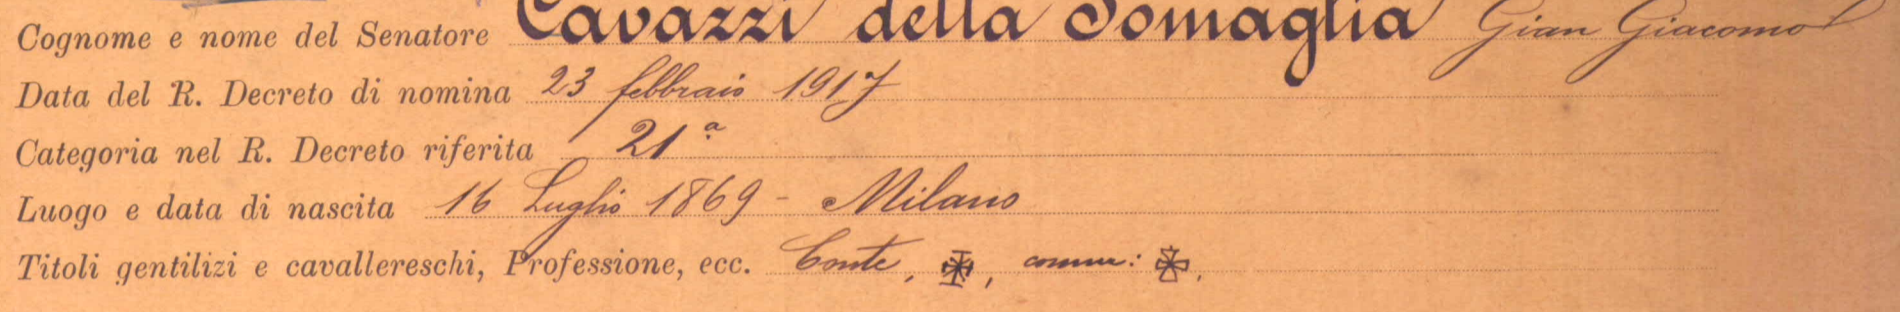 Cognome e nome del Senatore Cavazzi della Somaglia Gian Giacomo
Data del R. Decreto di nomina 23 febbraio 1917
Categoria nel R. Decreto riferita 21ª
Luogo e data di nascita 16 Luglio 1869 - Milano
Titoli gentilizi e cavallereschi, Professione, ecc. Conte, ✠, comm: ✠.